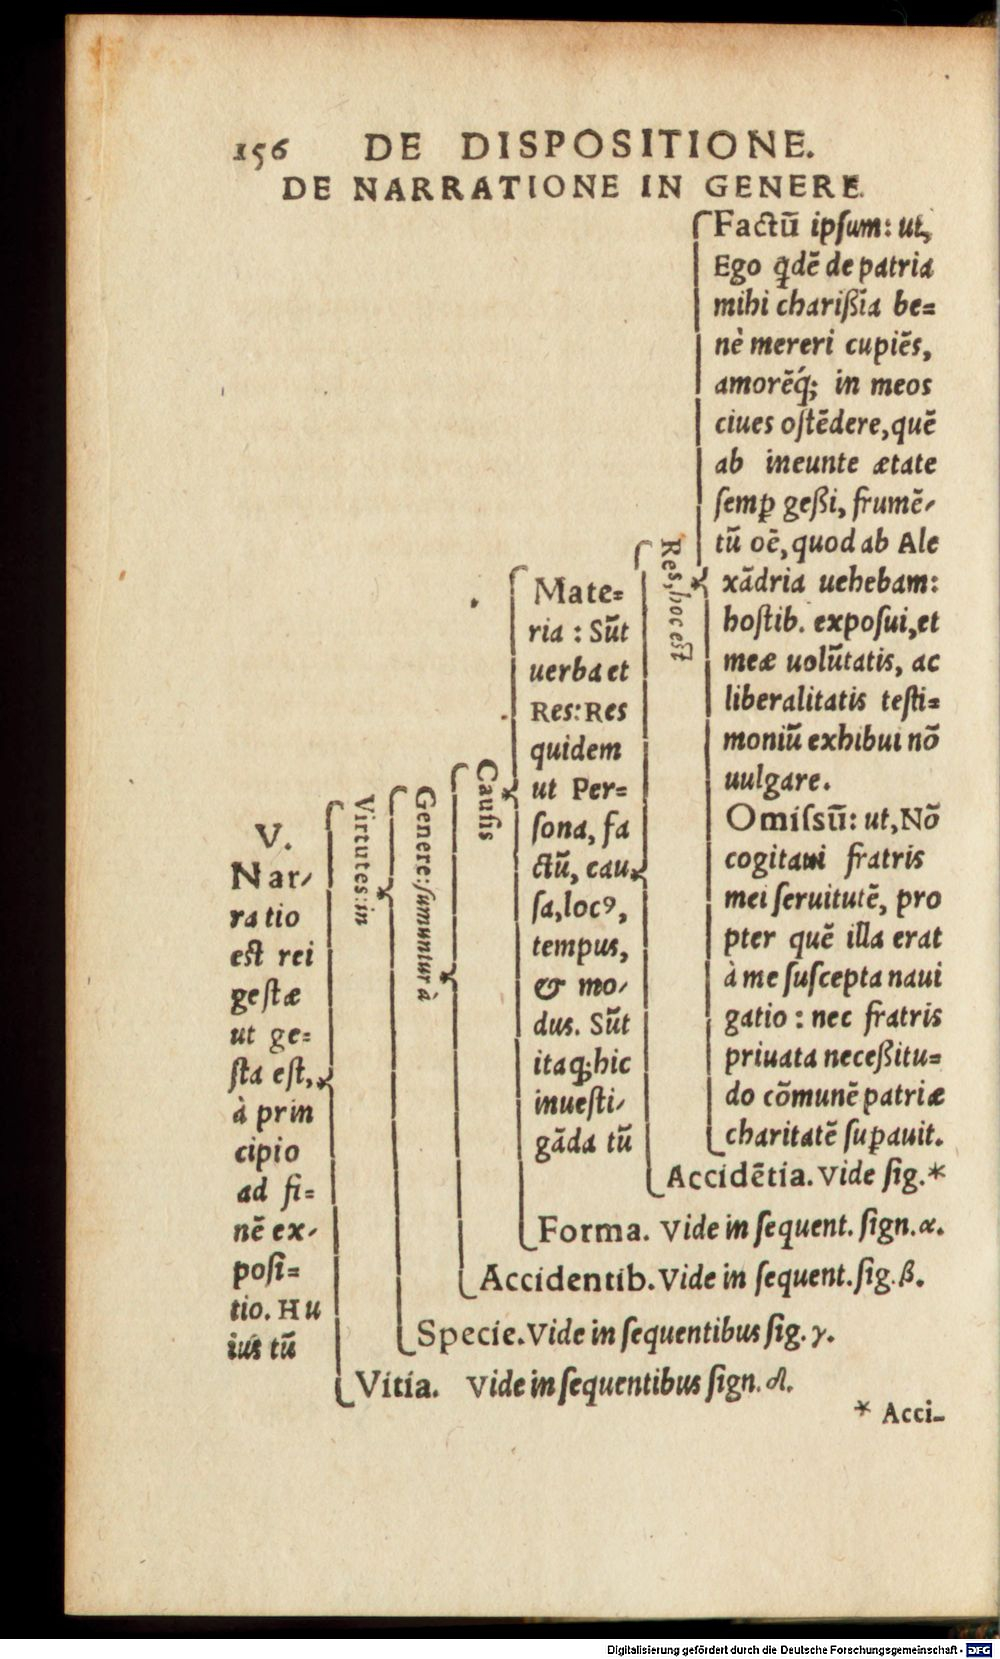 156 DE DISPOSITIONE.
DE NARRATIONE IN GENERE.
V.
Nar-
ratio
est rei
gestæ
ut ge=
sta est,
à prin
cipio
ad fi=
nẽ ex-
posi=
tio. Hu
ius tũ
Virtutes: in
Genere: sumuntur à
Causis
Mate=
ria: Sũt
uerba et
Res: Res
quidem
ut Per=
sona, fa
ctũ, cau
sa, locꝰ,
tempus,
& mo-
dus. Sũt
itaq; hic
inuesti-
gãda tũ
Res, hoc est
Factũ ipsum: ut,
Ego qdẽ de patria
mihi charißĩa be=
nè mereri cupiẽs,
amorẽq́; in meos
ciues ostẽdere, quẽ
ab ineunte ætate
semꝑ geßi, frumẽ-
tũ oẽ, quod ab Ale
xãdria uehebam:
hostib. exposui, et
meæ uolũtatis, ac
liberalitatis testi=
moniũ exhibui nõ
uulgare.
Omissũ: ut, Nõ
cogitaui fratris
mei seruitutẽ, pro
pter quẽ illa erat
à me suscepta naui
gatio: nec fratris
priuata neceßitu=
do cõmunẽ patriæ
charitatẽ suꝑauit.
Accidẽtia. Vide sig.*
Forma. Vide in sequent. sign. α.
Accidentib. Vide in sequent. sig. β.
Specie. Vide in sequentibus sig. γ.
Vitia. Vide in sequentibus sign. δ.
* Acci-
Digitalisierung gefördert durch die Deutsche Forschungsgemeinschaft - DFG